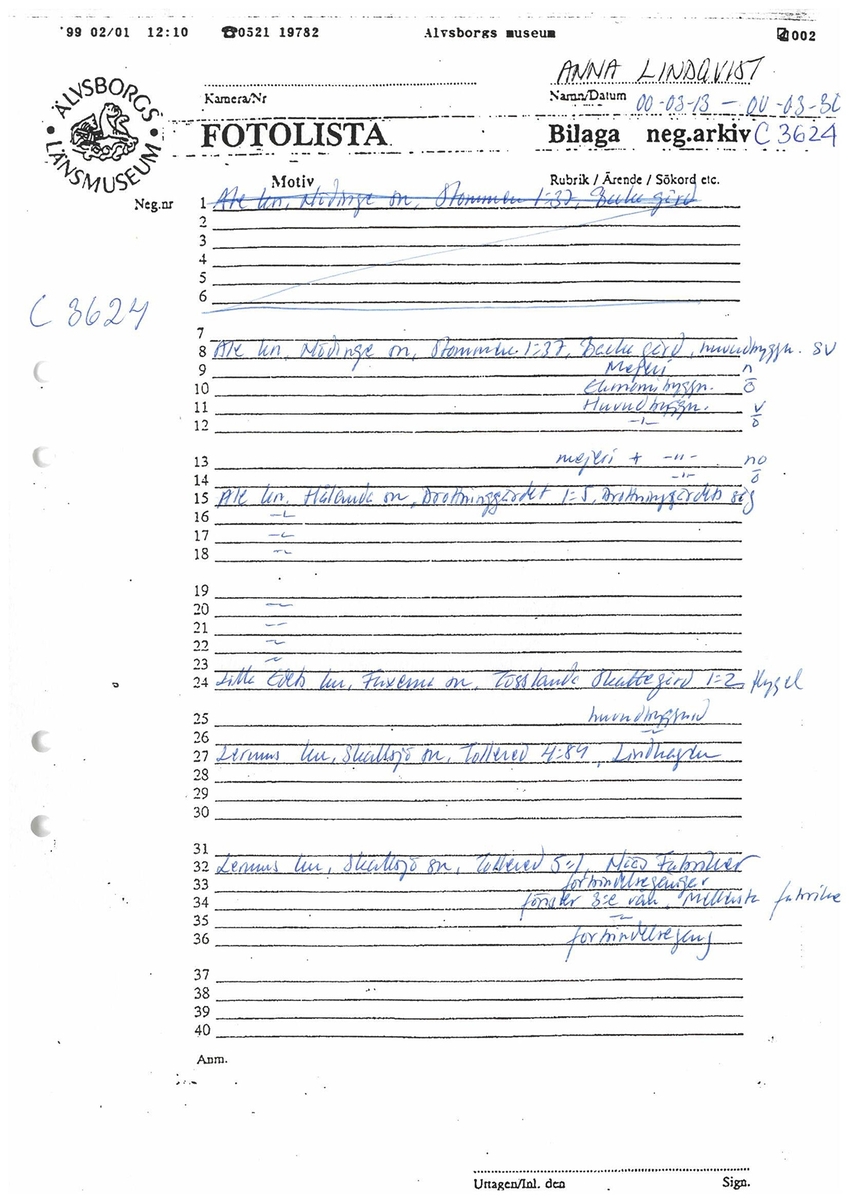 '99 02/01 12:10 ☎0521 19782 Alvsborgs museum 002
ÄLVSBORGS LÄNSMUSEUM
ANNA LINDQVIST
Kamera/Nr Namn/Datum 00-03-13 – 00-03-30
FOTOLISTA Bilaga neg.arkiv C 3624
Motiv Rubrik / Ärende / Sökord etc.
Neg.nr 1 Ale kn, Nödinge sn, Stommen 1:37, Backa gård
2
3
4
5
6
C 3624
7
8 Ale kn, Nödinge sn, Stommen 1:37, Backa gård, huvudbyggn. SV
9 Mejeri n
10 Ekonomibyggn. ö
11 Huvudbyggn. v
12 -"- ö
13 mejeri + -"- no
14 -"- ö
15 Ale kn. Hålanda sn, Drottninggärdet 1:5, Drottninggärdets såg
16 -"-
17 -"-
18 -"-
19
20 -"-
21 -"-
22 -"-
23 -"-
24 Lilla Edets kn, Fuxerna sn, Tösslanda Skattegård 1:2 flygel
25 huvudbyggnad
26 -"-
27 Lerums kn, Skallsjö sn, Tollered 4:84, Lindhagen
28
29
30
31
32 Lerums kn, Skallsjö sn, Tollered 5:1, Nääs Fabriker
33 förbindelsegångar
34 fönster 3:e vån, mellersta fabriken
35 -"-
36 förbindelsegång
37
38
39
40
Anm.
Uttagen/Inl. den Sign.